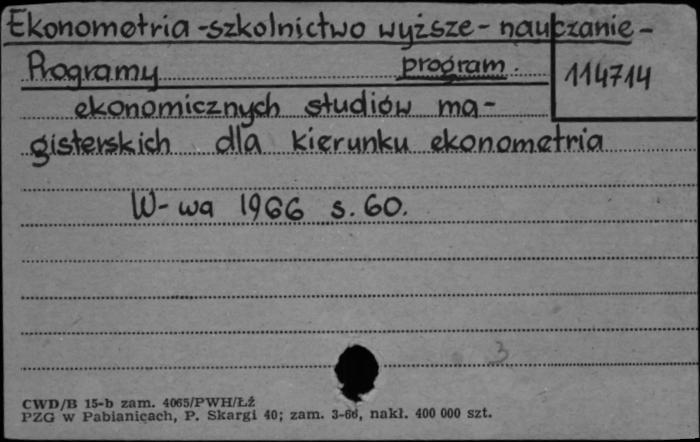 Ekonometria - szkolnictwo wyższe - nauczanie -
program.
114714
Programy
ekonomicznych studiów ma-
gisterskich dla kierunku ekonometria
W-wa 1966 s. 60.
3
CWD/B 15-b zam. 4065/PWH/ŁŹ
PZG w Pabianicach, P. Skargi 40; zam. 3-66, nakł. 400 000 szt.